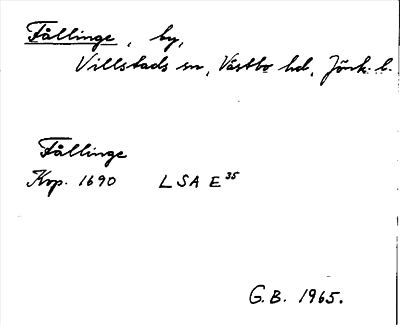 Fållinge, by,
Villstads sn, Västbo hd, Jönk. l.
Fållinge
Kop. 1690 LSA E 35
G.B. 1965.